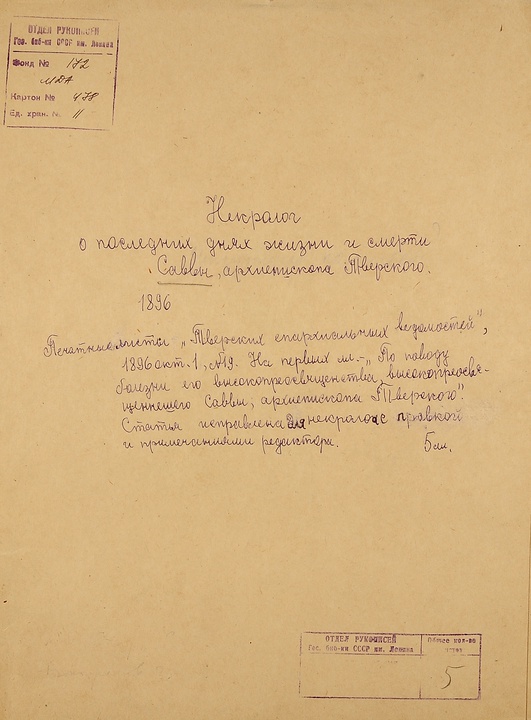 ОТДЕЛ РУКОПИСЕЙ
Гос. биб-ки СССР им. Ленина
Фонд № 172
МДА
Картон № 478
Ед. хран. № 11
Некролог
о последних днях жизни и смерти
Саввы, архиепископа Тверского.
1896
Печатные листы „Тверских епархиальных ведомостей",
1896 окт. 1, №19. На первых лл. – „По поводу
болезни его высокопреосвященства, высокопреосвя-
щеннейшего Саввы, архиепископа Тверского".
Статья исправлена для некролога с правкой
и примечаниями редактора. 5 лл.
ОТДЕЛ РУКОПИСЕЙ
Гос. биб-ки СССР им. Ленина
Общее кол-во
листов
5